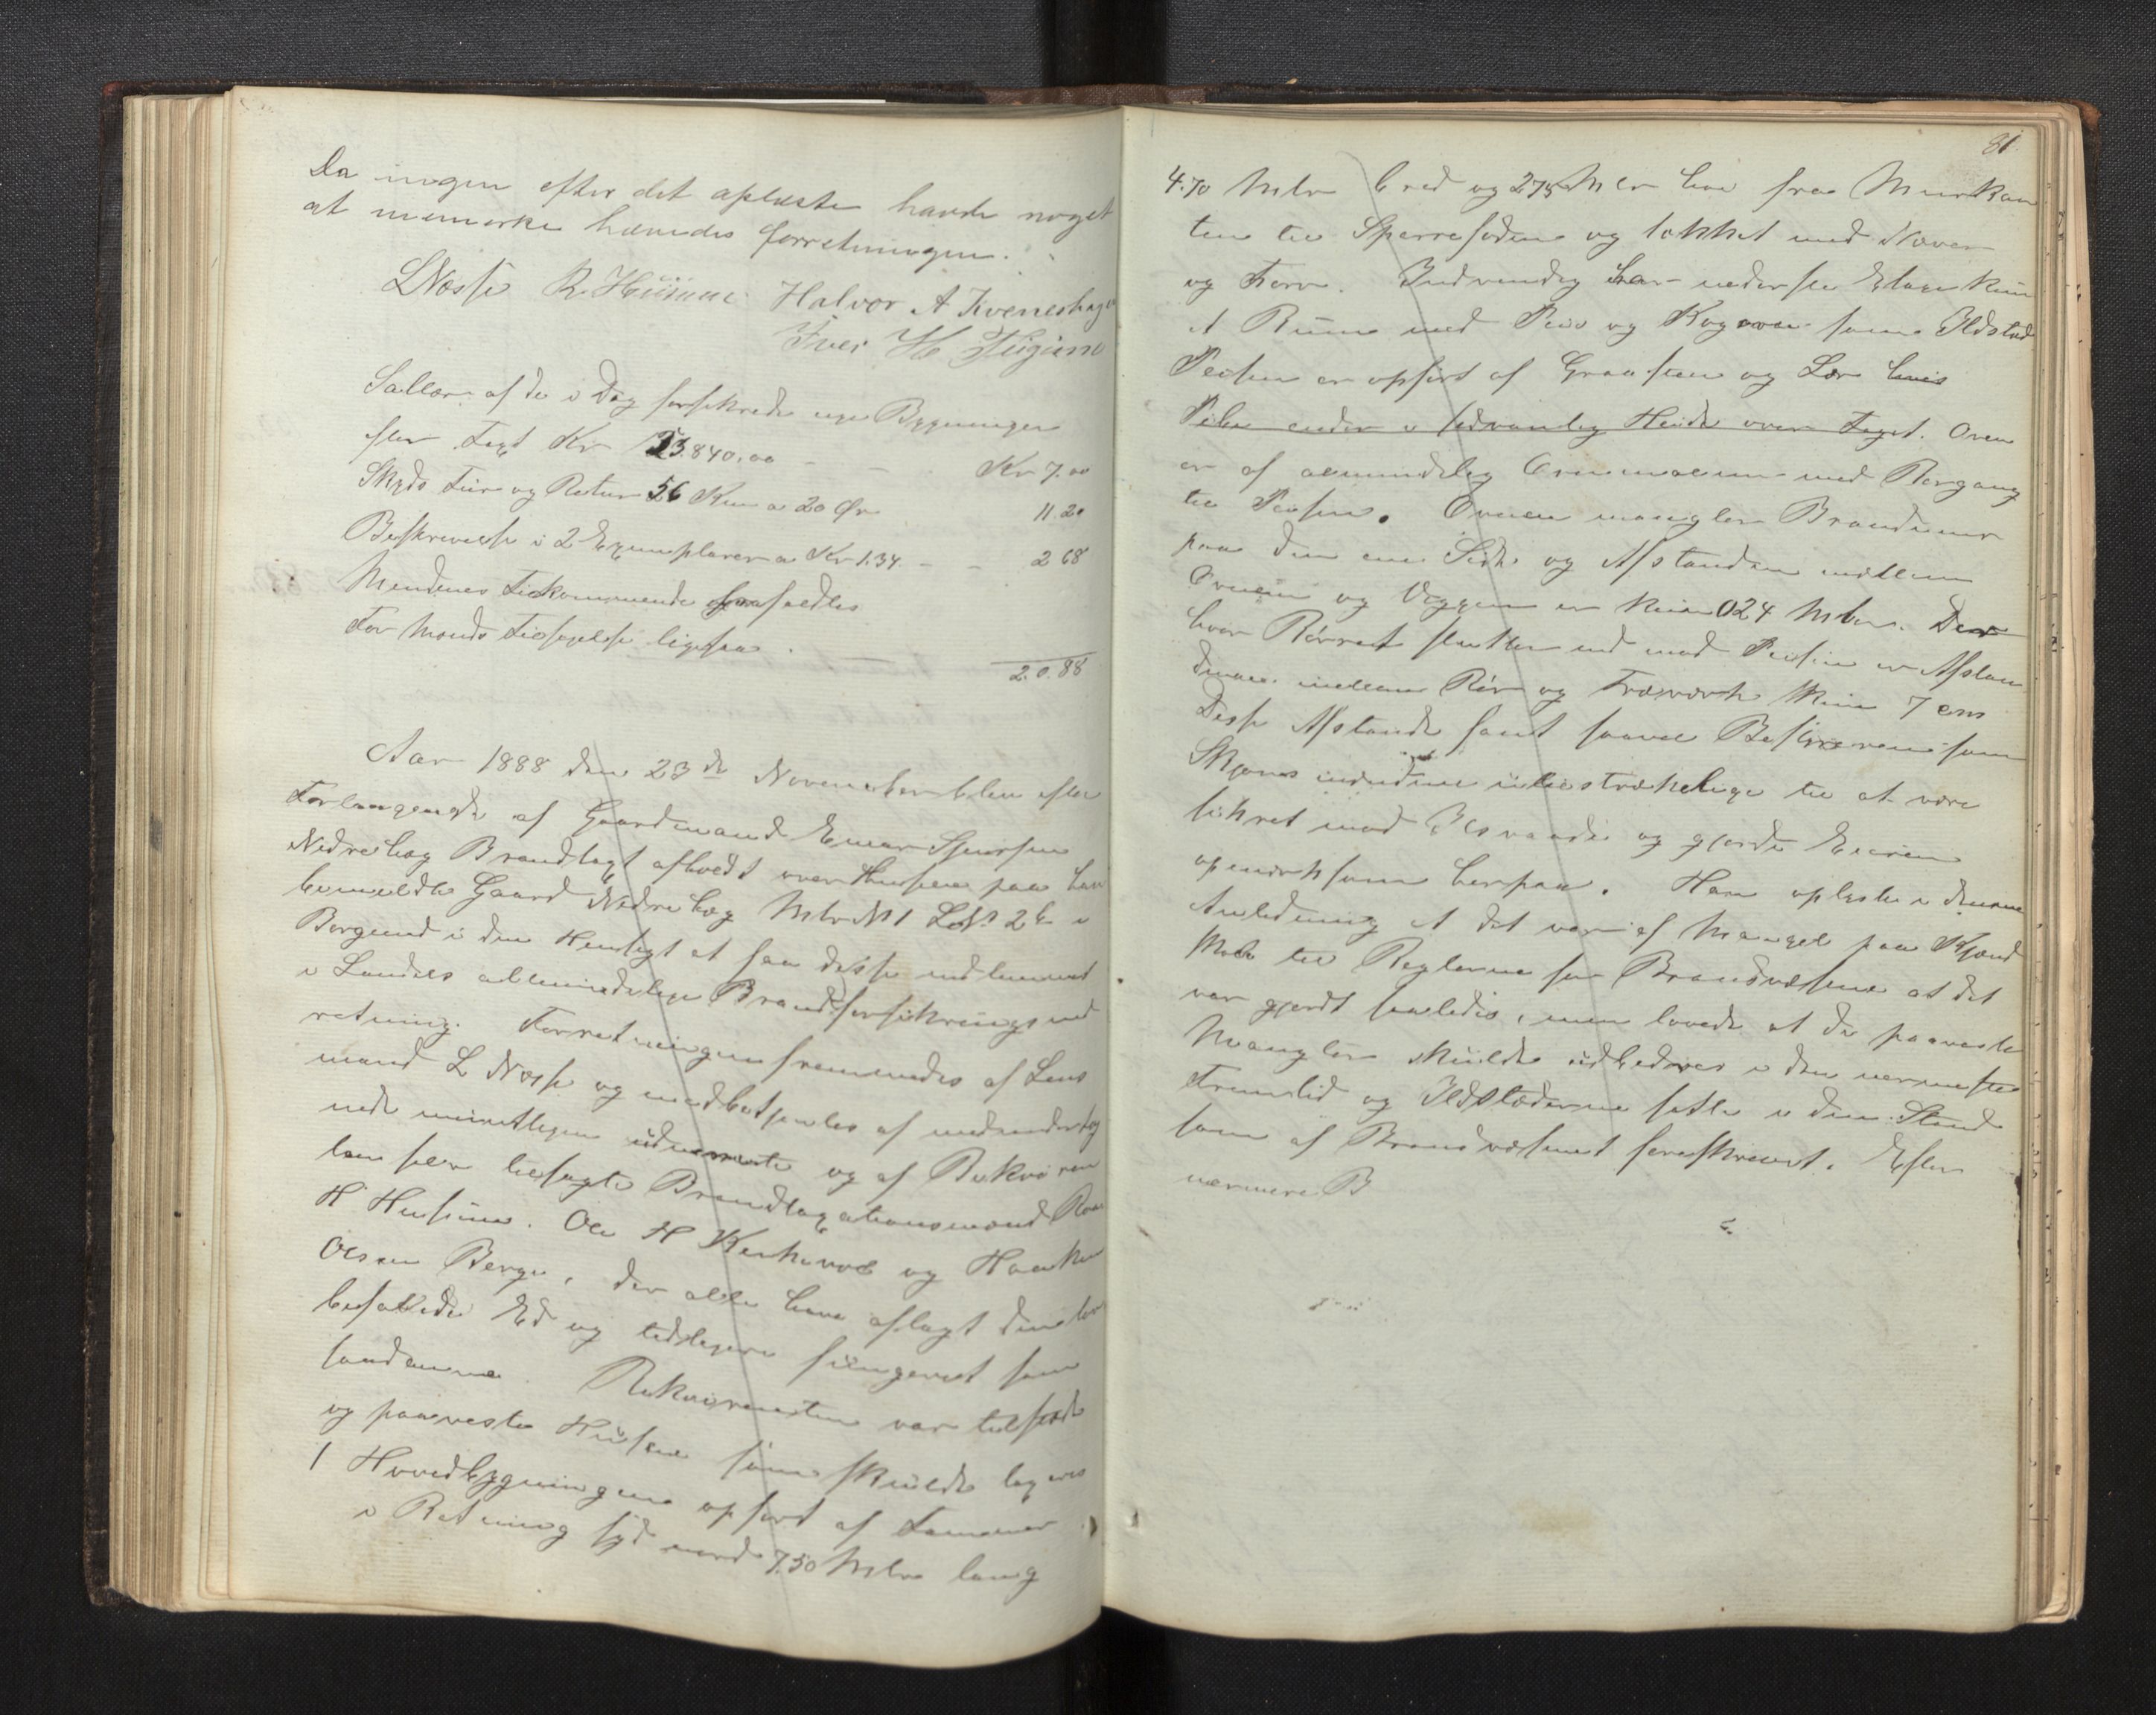 Da ingen efter det oplæste havde noget
at minnerke hævedes forretningen.
LNæsse R Hüsum Halvor A Kvenshage
Iver H
Sallær af de i Dag forsikrede nye Bygninger
efter Taxt Kr 13.840.00 - - Kr 7.00
Skyds Tur og Retur 56 Km a 20 Øre 11.20
Beskrivelse i 2 Exemplarer a Kr 1.34 - - 2 68
Mendenes Tilkommende frafaldtes
For Mænds Tilsigelse ligesaa.
20.88
Aar 1888 den 23de November blev efter
Forlangende af Gaardmand Einar Sjursen
Nedrehæg Brandtaxt afholdt over Husene paa hans
bemeldte Gaard Nedrehæg Mtr No 1 LNo 2b i
Borgund i den Hensigt at faa disse indlemmet
i Landets allmindelige Brandforsikringsind
retning. Forretningen fremmedes af Lens
mand L Næsse og medbetjentes af nedenderteg
nede mindtligen udnevnte og af Rekviren
ten selv tilsagte Brandtaxationsmænd Roar
H Husum. Ole H Kirkevold og Haaken
Olsen Berge, der alle have aflagt den lov
befalede Ed og tidligere fungeret som
saadanne. Rekvirenten var tilstæde
og paaviste Husene som skulde taxeres
1 Hovedbygningen opført af Tømmer
i Retning syd nord 7.50 Mtr lang
81.
4.70 Mtr bred og 275 Mtr høi fra Murkan
ten til Sperrefoden og tækket med Næver
og Torv. Indvendig har nederste Etage kun
1 Rum med Peis og Kogovn som Ildsted
Peisen er opført af Graasten og Ler hvis
Pibe ender i sedvanlig Høide over Taget. Oven
er af almindelig Ovnmalm med Rørgang
til Peisen. Ovnen mangler Brandmur
paa den ene Side og Afstanden mellem
Ovnen og Væggen er kun 024 Mtr. Der
hvor Rørret slutter ind mod Peisen er Afstan
den mellem Rør og Træværk kun 7 cm
Disse Afstande samt saavel Bestyreren som
Skjønsmændene utilstrækkelige til at være
sikret mod Ildsvaade og gjorde Eieren
opmerksom herpaa. Han oplyste i denne
Anledning at det var af Mangel paa Kjend
skab til Reglerne for Brandvæsene at det
var gjordt saaledes, men lovede at de paaviste
Mangler skulde udbedres i den nermeste
Fremtid og Ildstæderne sette i den Stand
som af Brandvæsenet foreskrevet. Efter
nærmere B